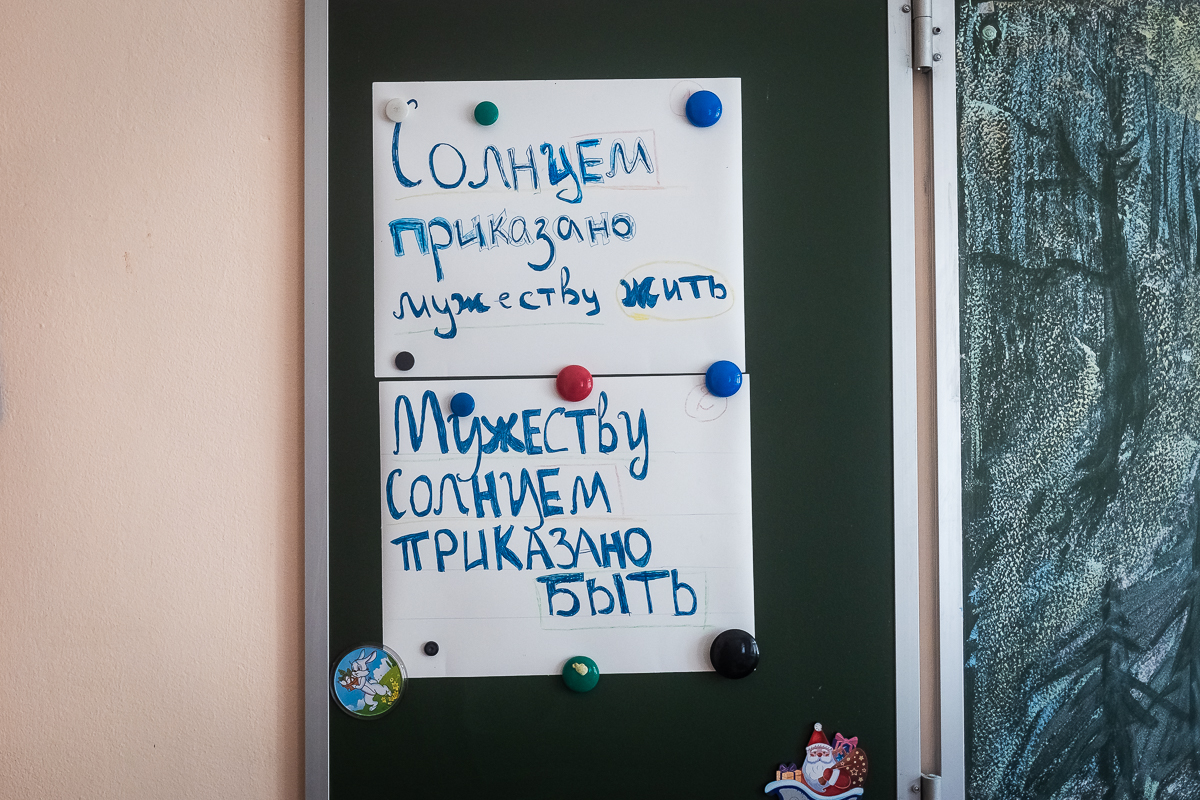 Солнцем
приказано
мужеству жить
Мужеству
солнцем
приказано
быть